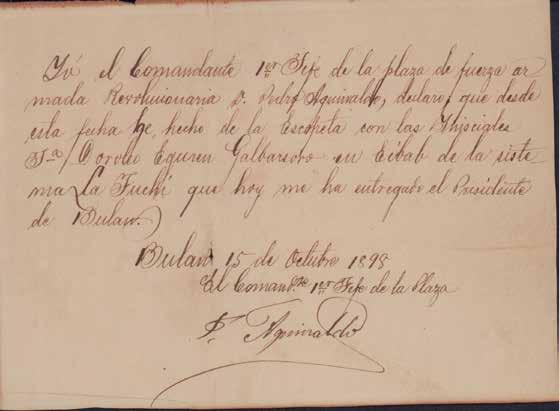 Yó el Comandante 1er Jefe de la plaza de fuerza ar
mada Revoluionaria D. Pedro Aguinaldo, declaro que desde
esta fecha he hecho de la Escopeta con las Yhisciales
Ja / Coroleo Eguren Galbarsoro en Eibab de la siste
ma La Fuchi que hoy me ha entregado el Presidente
de Bulan.
Bulan 15 de Octubre 1898
El Comante 1er Jefe de la Plaza
P. Aguinaldo